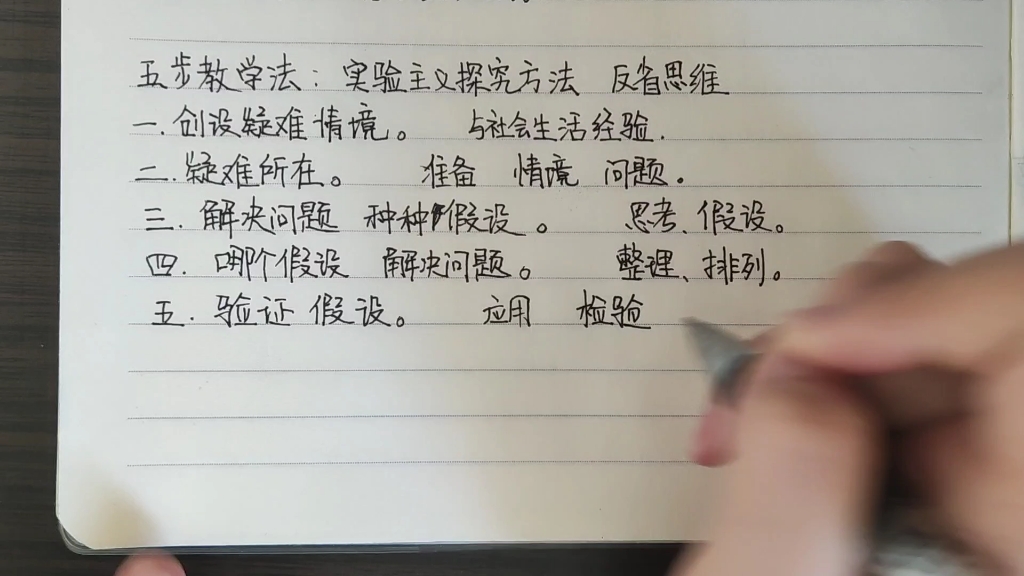 五步教学法：实验主义探究方法 反省思维
一.创设疑难情境。 与社会生活经验.
二.疑难所在。 准备 情境 问题.
三.解决问题 种种假设。 思考、假设。
四.哪个假设 解决问题。 整理、排列。
五.验证假设。 应用 检验